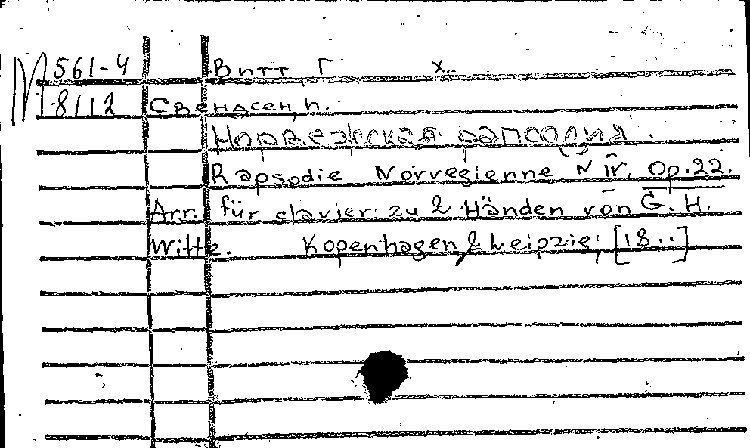 М 561-4 Витт Г х..
8112 Свендсен, И.
Норвежская рапсодия.
Rapsodie Norvegienne N IV. Op. 22.
Arr. für clavier zu 2 Händen von G. H.
Witte. Kopenhagen & Leipzig, [18..]